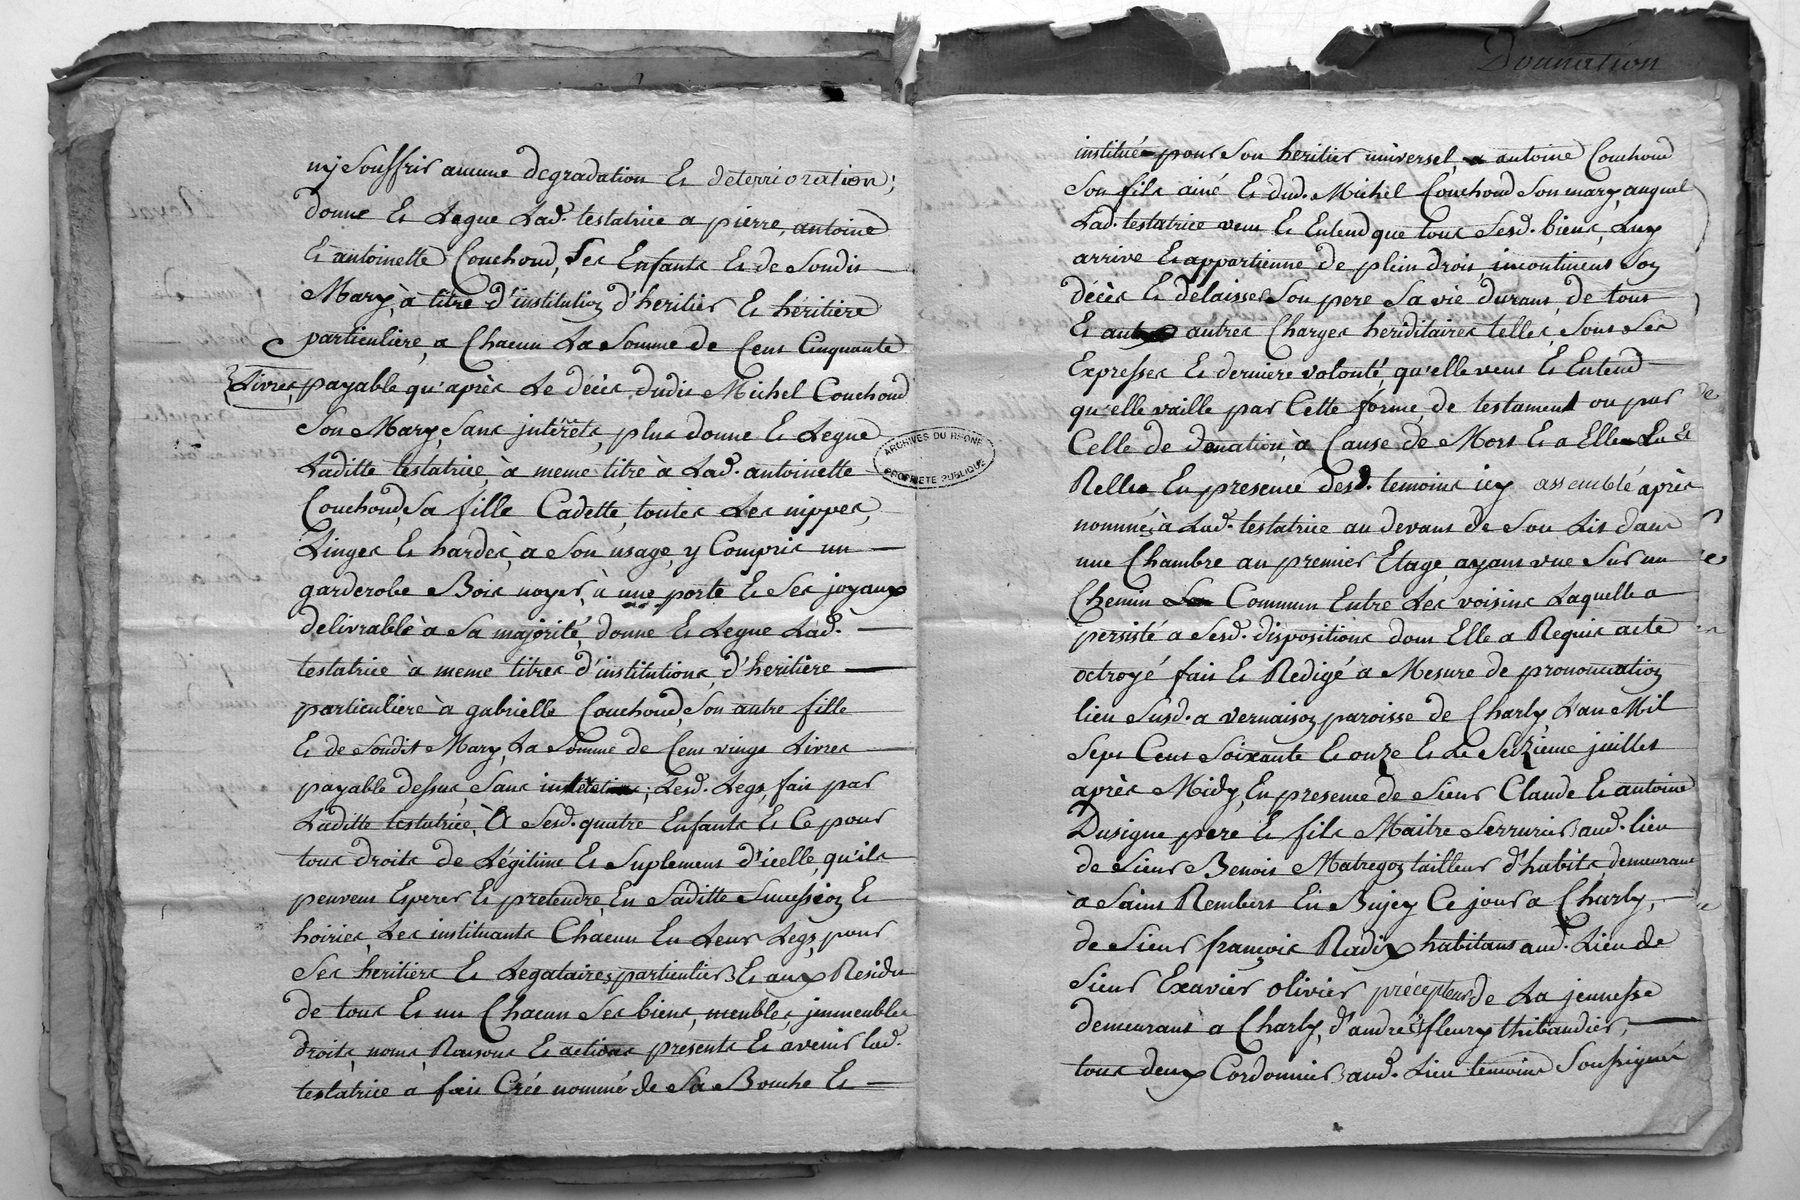 nÿ Souffrir aucune degradation Et deterrioration;
donne Et Legue Lad. testatrice a pierre, antoine
Et antoinette Couchoud, Ses Enfants Et de Soudit
Mary, à titre d'institution d'heritier Et héritiere
particulière, a Chacun La Somme de Cent Cinquante
Livres, payable qu'après Le décès, dudit Michel Couchoud
Son Mary, Sans intérêts, plus donne Et Legue
Laditte testatrice, à meme titre à Lad. antoinette
Couchoud, Sa fille Cadette, toutes Les nippes,
Linges Et hardes, a Son usage, y Compris un
garderobe Bois noyer, à une porte Et Ses joyaux
delivrable à Sa majorité, donne Et Legue Lad.
testatrice à meme titres d'institutions, d'heritière
particuliere à gabrielle Couchoud, Son autre fille
Et de Soudit Mary, La Somme de Cent vingt Livres
payable dessus, Sans ; Lesd. Legs, fait par
Laditte testatrice, à Sesd. quatre Enfants Et Ce pour
tous droits de Légitime Et Suplement d'icelle, qu'ils
peuvent Esperer Et pretendre, En Saditte Succession Et
hoiries, Les instituants Chacun En Leur Legs, pour
Ses heritiers Et Legataires particuliers Et aux Residu
de tous Et un Chacun Ses biens, meubles, jmmeubles
droits, noms, Raisons Et actions presents Et avenir Lad.
testatrice a fait Crée nommé de Sa Bouche Et
Donnation
institué pour Son heritier universel, a antoine Couchoud
Son fils ainé Et dud. Michel Couchoud Son mary, auquel
Lad. testatrice veut Et Entend que tous Sesd. biens, Luy
arrive Et appartienne de plein droit, incontinent Son
décès Et délaisser Son pere Sa vie durant, de tous
Et autres Charges heriditaires telles, Sont Ses
Expresses Et derniere volonté, qu'elle veut Et Entend
qu'elle vaille par Cette forme, de testament ou par
Celle de donation, à Cause de Mort Et a Elle Lu Et
Relluë En presence desd. temoins icy assemblé après
nommé, à Lad. testatrice au devant de Son Lit dans
une Chambre au premier Etage, ayant vue Sur un
Chemin Commun Entre Les voisins Laquelle a
persisté a Sesd. dispositions dont Elle a Requis acte
octroyé fait Et Redigé a Mesure de prononciation
lieu Susd. a vernaison paroisse de Charly, L'an Mil
Sept Cent Soixante Et onze Et Le Seizieme juillet
après Midy, En presence de Sieur Claude Et antoine
Dusigne pere Et fils Maitre Serrurier aud. lieu
de Sieur Benoit Matregon tailleur d'habits, demeurant
à Saint Rembert En Bujey Ce jour a Charly,
de Sieur françois Radix habitant aud. Lieu de
Sieur Exavier olivier précepteur de La jeunesse
demeurant a Charly, d'andré Et fleury thibaudier,
tous deux Cordonnier aud. Lieu temoins Soussignés
ARCHIVES DU RHONE
PROPRIETE PUBLIQUE